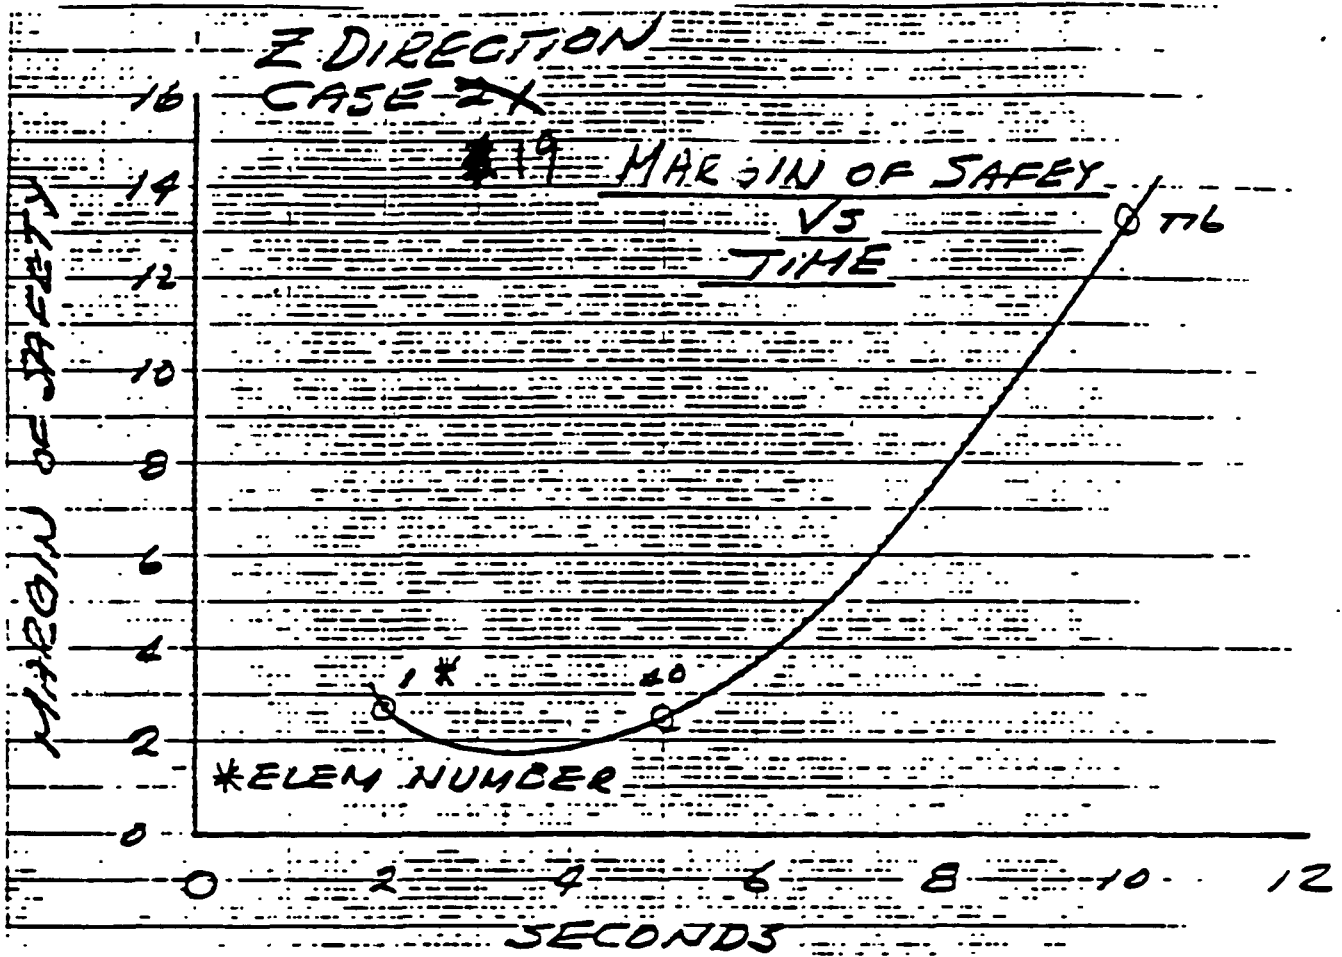 Z DIRECTION
CASE 2
19
MARGIN OF SAFEY
VS
TIME
MARGIN OF SAFETY
16
14
12
10
8
6
4
2
0
1 *
40
776
*ELEM NUMBER
0 2 4 6 8 10 12
SECONDS